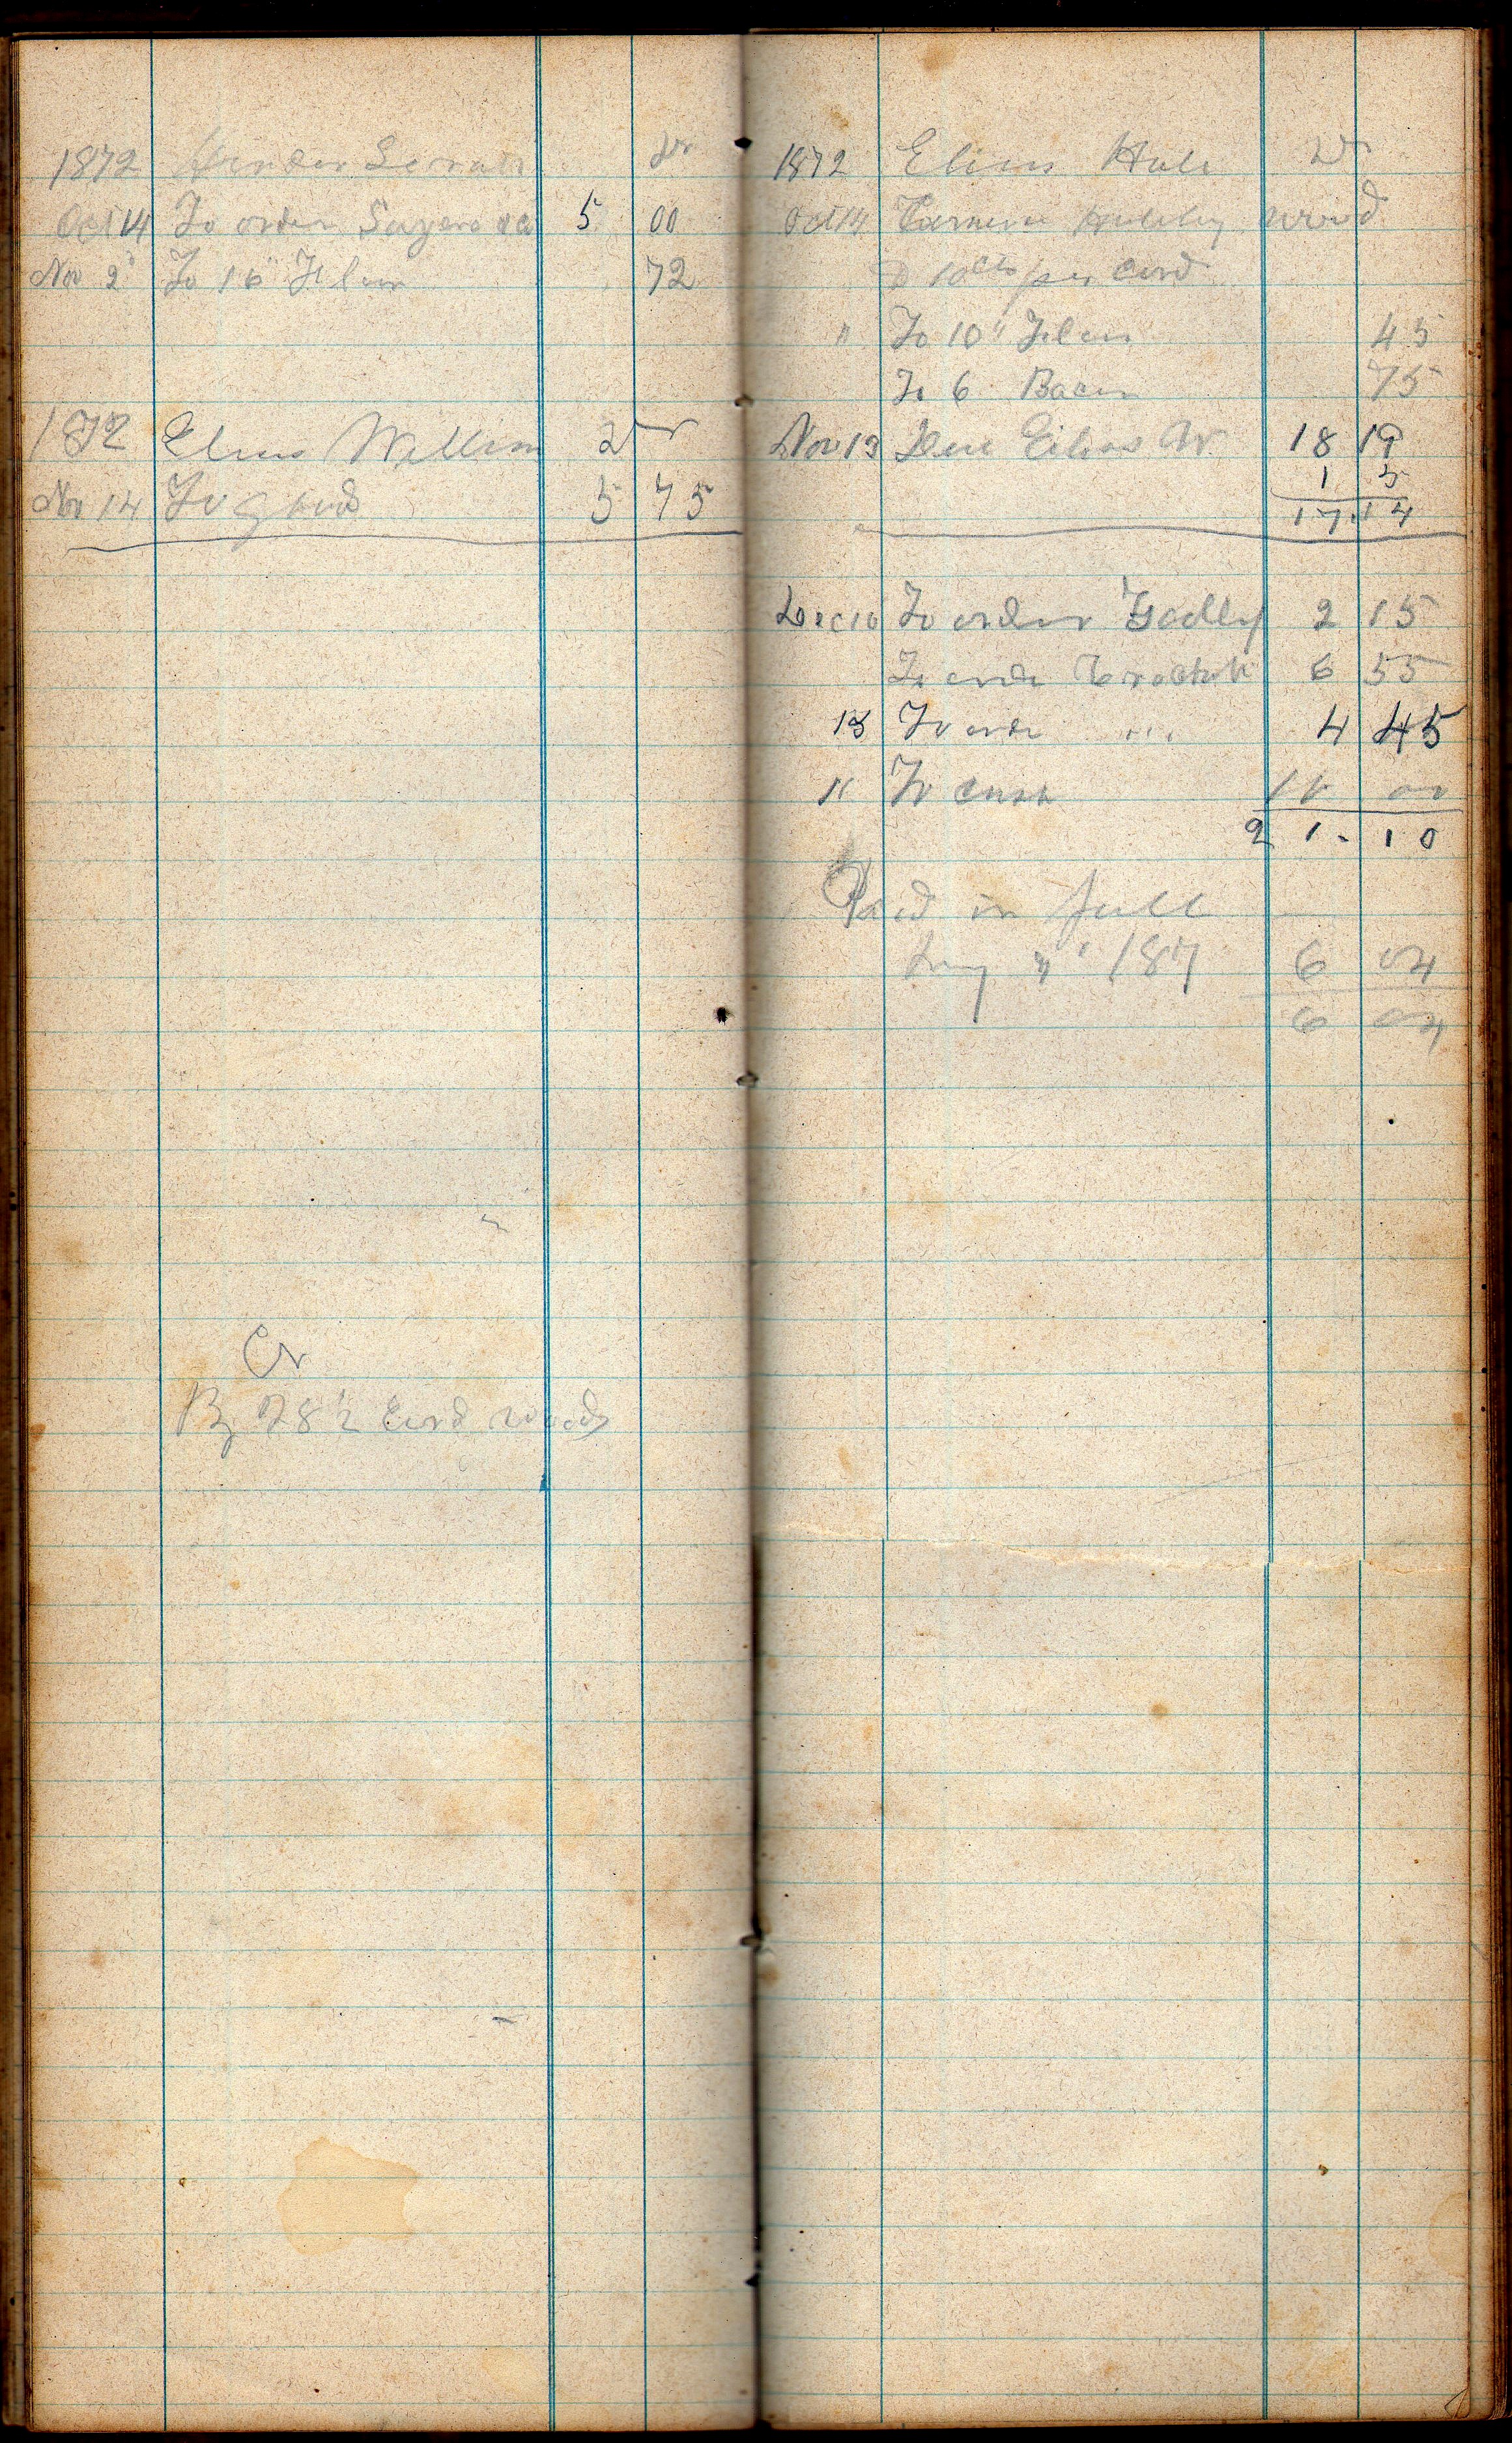 1872 Dr
Oct 14 To order 5 00
Nov 2 To 16 " Flour 72
1872 Elius William Dr
Nov 14 To goods 5 75
Cr
By 78 1/2 Cord wood
1872 Elius Hale Dr
Oct 14 wood
10 cts per Cord
" To 10 " Flour 45
To 6 Bacon 75
Nov 13 Due Elias W. 18 19
1 5
17.14
Dec 10 To order Godley 2 15
To order 6 55
13 To order " " 4 45
" To cash
2 1 - 10
Paid in full
187 6 04
6 04